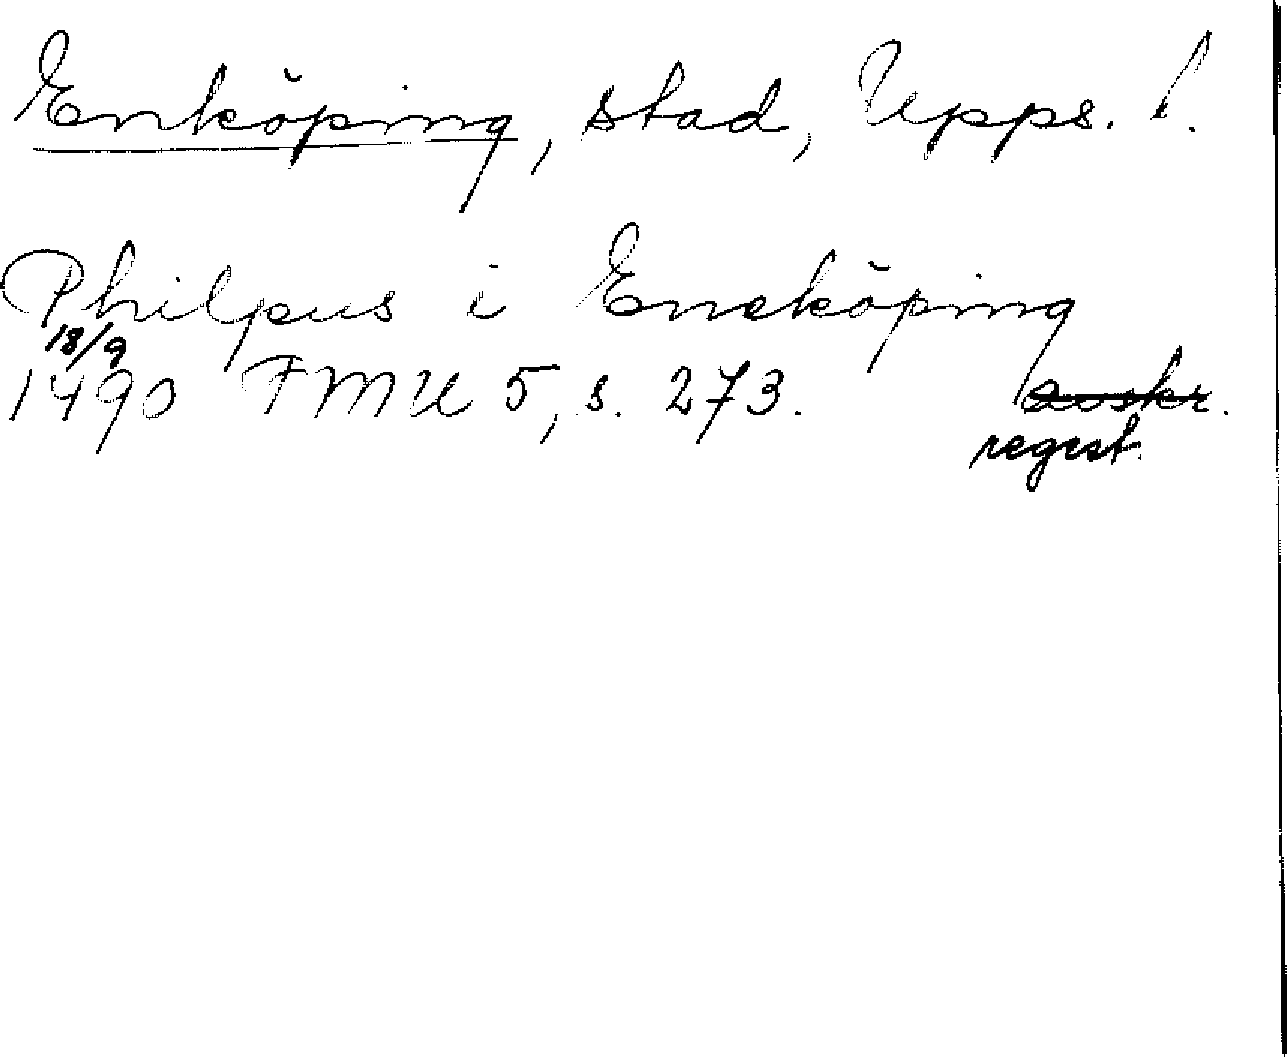 Enköping, stad, Upps. l.
Philpus i Eneköping
18/9
1490 FMU 5, s. 273. avskr.
regest.